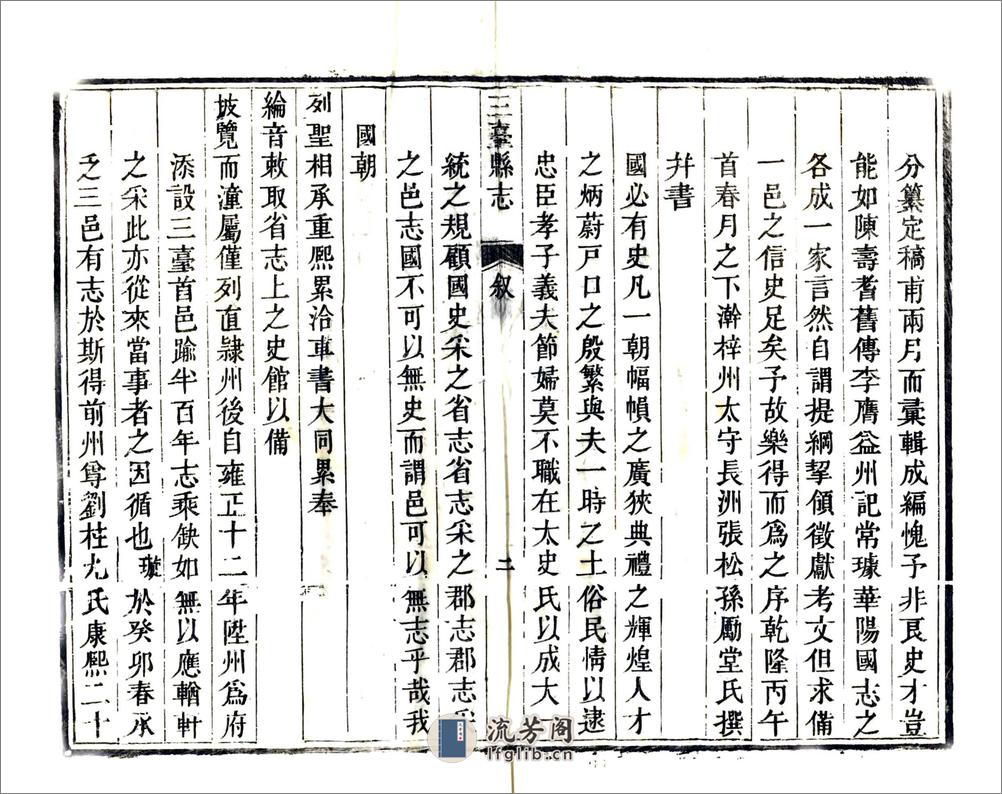 分纂定稿甫兩月而彙輯成編愧予非良史才豈
能如陳壽耆舊傳李膺益州記常璩華陽國志之
各成一家言然自謂提綱挈領徵獻考文但求備
一邑之信史足矣予故樂得而爲之序乾隆丙午
首春月之下澣梓州太守長洲張松孫勵堂氏撰
幷書
國必有史凡一朝幅幀之廣狹典禮之輝煌人才
之炳蔚戸口之殷繁與夫一時之土俗民情以逮
忠臣孝子義夫節婦莫不職在太史氏以成大一
三臺縣志 叙 二
統之規顧國史采之省志省志采之郡志郡志采
之邑志國不可以無史而謂邑可以無志乎哉我
國朝
列聖相承重熙累洽車書大同累奉
綸音敕取省志上之史館以備
披覽而潼屬僅列直隸州後自雍正十二年陞州爲府
添設三臺首邑踰半百年志乘缺如無以應輶軒
之采此亦從來當事者之因循也璇於癸卯春承
乏三邑有志於斯得前州尊劉桂九氏康熙二十
流芳阁
lfglib.cn